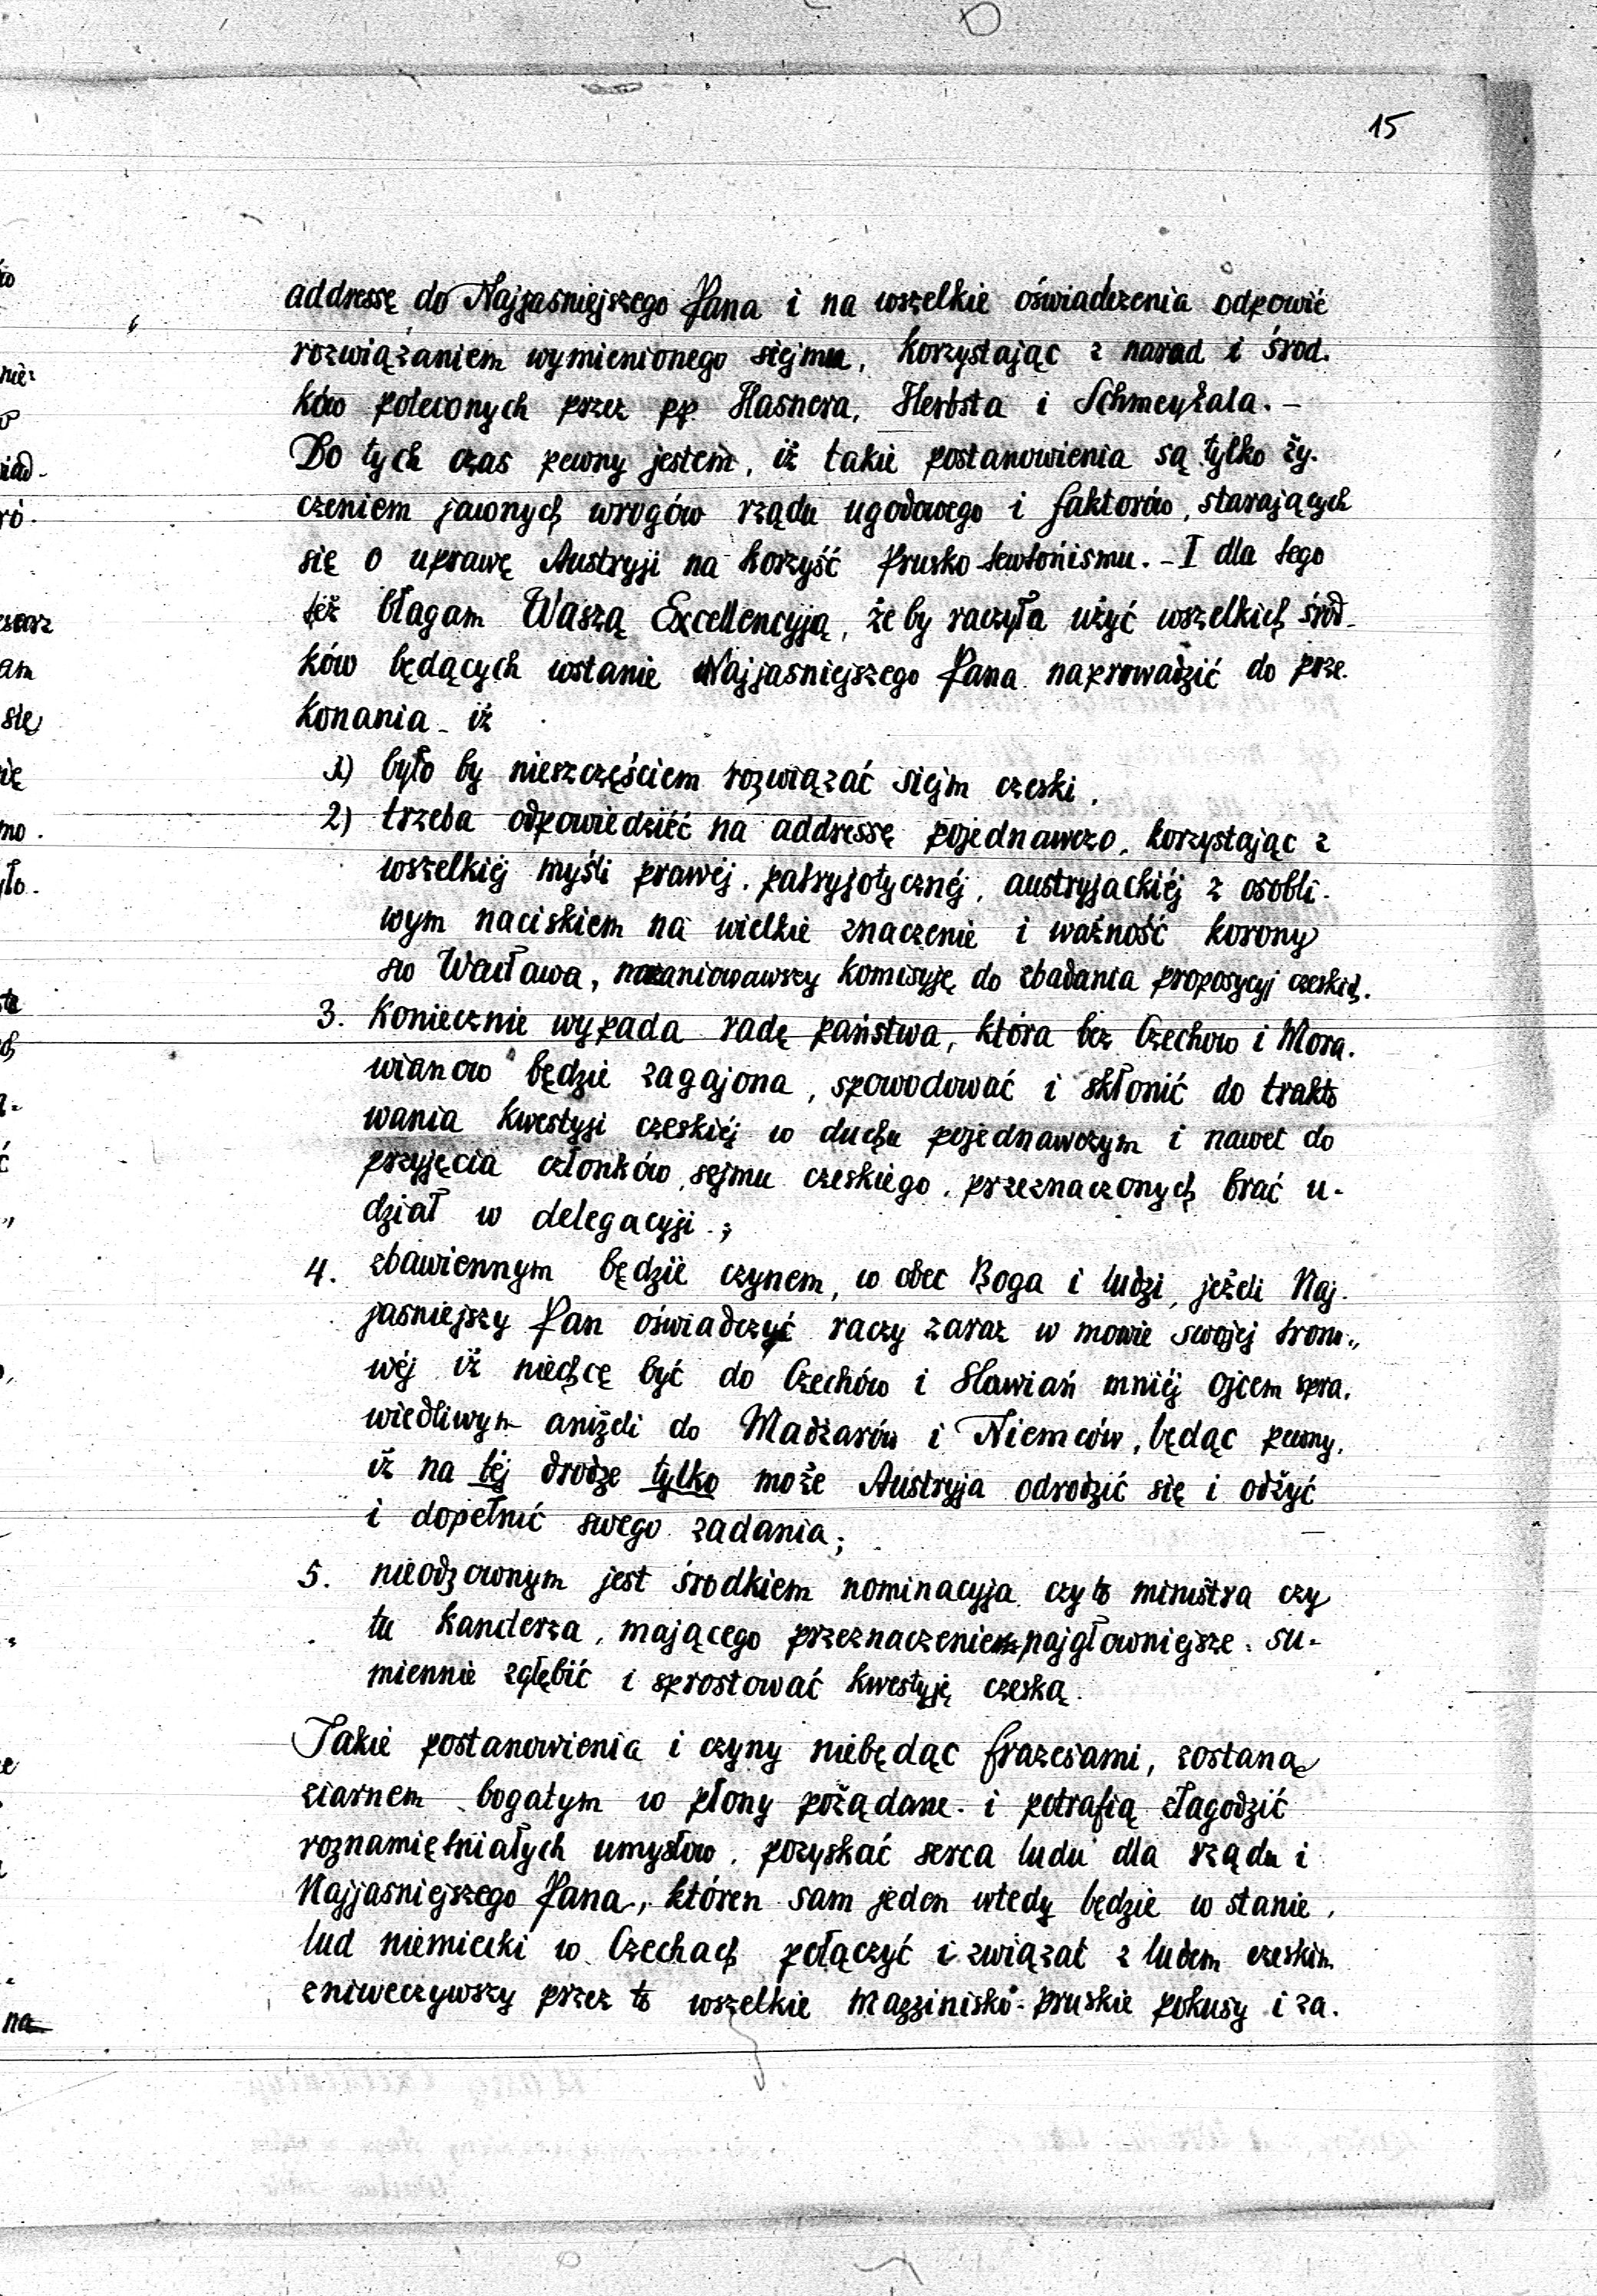 15
addressę do Najjasniejszego Pana i na wszelkie oświadczenia odpowić
rozwiązaniem wymienionego siejmu, korzystając z narad i środ-
ków poleconych przez pp. Hasnera, Herbsta i Schmeykala. –
Do tych czas pewny jestem, iż takie postanowienia są tylko ży-
czeniem jawnych wrogów rządu ugodowego i faktorów, starających
się o uprawę Austryji na korzyść prusko-tewtonismu. – I dla tego
też błagam Waszą Excellencyją, że by raczyła użyć wszelkich środ-
ków będących wstanie Najjasniejszego Pana naprowadzić do prze-
konania – iż
1) było by nieszczęściem rozwiązać siejm czeski,
2) trzeba odpowiedzieć na addressę pojednawczo, korzystając z
wszelkiéj myśli prawéj, patryjotycznéj, austryjackiéj z osobli-
wym naciskiem na wielkie znaczenie i ważność korony
sw Wacława, mianowawszy komisyję do zbadania proposycyj czeskich.
3. Koniecznie wypada radę państwa, która bez Czechow i Mora-
wianow będzie zagajona, spowodować i skłonić do trakto
wania kwestyji czeskiéj w duchu pojednawczym i nawet do
przyjęcia członków sejmu czeskiego, przeznaczonych brać u-
dział w delegacyji;
4. zbawiennym będzie czynem, w obec Boga i ludzi, jeżeli Naj-
jasniejszy Pan oświadczyć raczy zaraz w mowie swojej trono-
wéj iż niechcę być do Czechów i Sławiań mniéj ojcem spra-
wiedliwym aniżeli do Madżarów i Niemców, będąc pewny,
iż na téj drodze tylko może Austryja odrodzić się i odżyć
i dopełnić swego zadania;
5. nieodzownym jest środkiem nominacyja czyto ministra czy
tu kanclerza, mającego przeznaczenie najgłowniejsze: su-
miennie zgłębić i sprostować kwestyję czeską.
Takie postanowienia i czyny niebędąc frazesami, zostaną
ziarnem bogatym w płony pożądane i potrafią złagodzić
roznamiętniałych umysłow, pozyskać serca ludu dla rządu i
Najjasniejszego Pana, któren sam jeden wtedy będzie w stanie,
lud niemiecki w Czechach połączyć i związat z ludem czeskim
zniweczywszy przez to wszelkie Mazzinisko-pruskie pokusy i za-